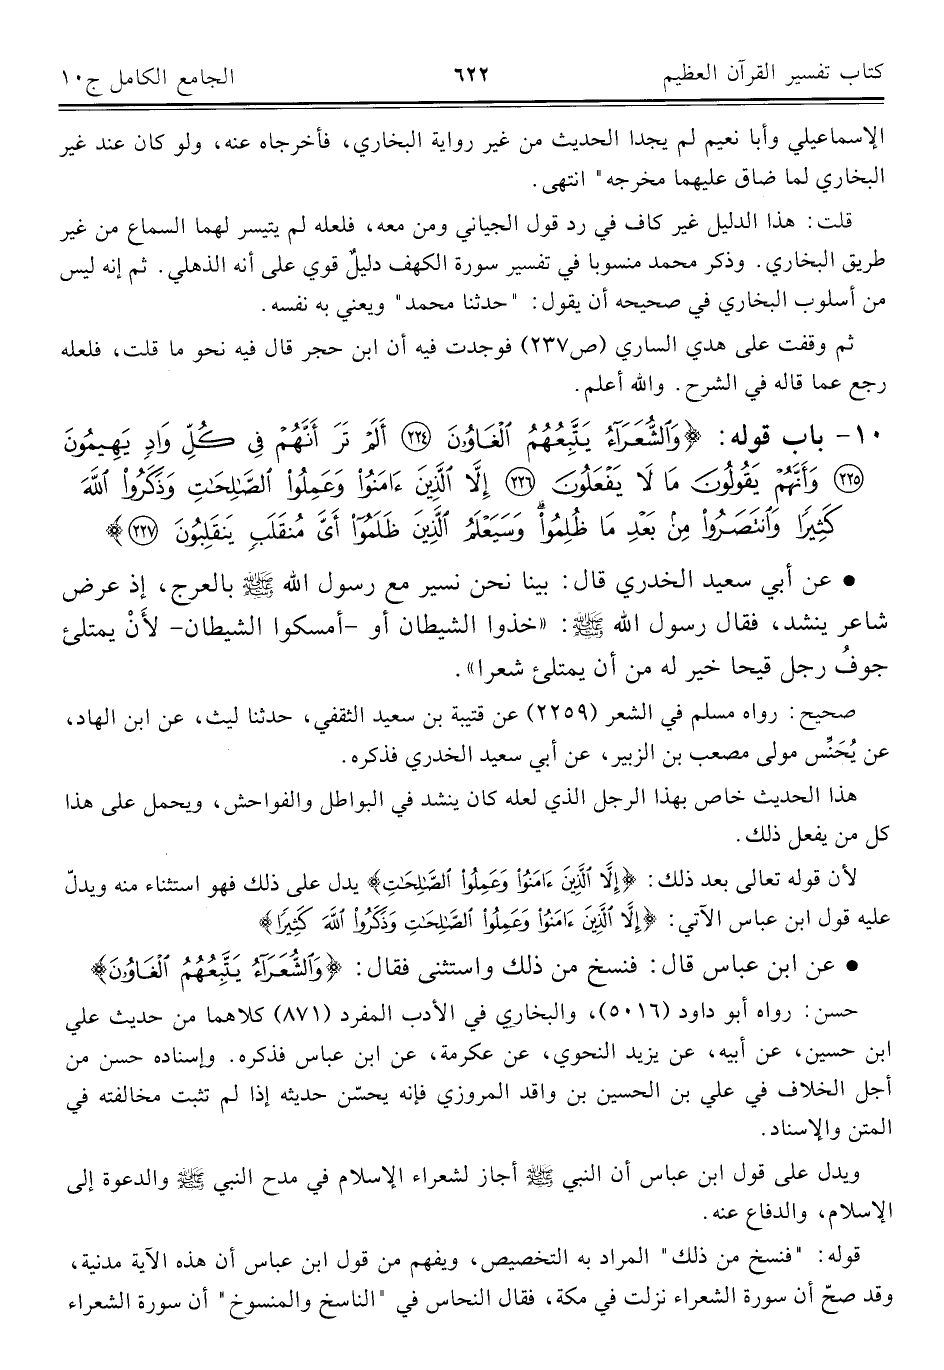 كتاب تفسير القرآن العظيم ٦٢٢ الجامع الكامل ج١٠
الإسماعيلي وأبا نعيم لم يجدا الحديث من غير رواية البخاري، فأخرجاه عنه، ولو كان عند غير
البخاري لما ضاق عليهما مخرجه" انتهى.
قلت: هذا الدليل غير كاف في رد قول الجياني ومن معه، فلعله لم يتيسر لهما السماع من غير
طريق البخاري. وذكر محمد منسوبا في تفسير سورة الكهف دليلٌ قوي على أنه الذهلي. ثم إنه ليس
من أسلوب البخاري في صحيحه أن يقول: "حدثنا محمد" ويعني به نفسه.
ثم وقفت على هدي الساري (ص٢٣٧) فوجدت فيه أن ابن حجر قال فيه نحو ما قلت، فلعله
رجع عما قاله في الشرح. والله أعلم.
١٠- باب قوله: ﴿وَٱلشُّعَرَآءُ يَتَّبِعُهُمُ ٱلْغَاوُۥنَ ٢٢٤ أَلَمْ تَرَ أَنَّهُمْ فِى كُلِّ وَادٍ يَهِيمُونَ
٢٢٥ وَأَنَّهُمْ يَقُولُونَ مَا لَا يَفْعَلُونَ ٢٢٦ إِلَّا ٱلَّذِينَ ءَامَنُوا۟ وَعَمِلُوا۟ ٱلصَّٰلِحَٰتِ وَذَكَرُوا۟ ٱللَّهَ
كَثِيرًا وَٱنتَصَرُوا۟ مِنۢ بَعْدِ مَا ظُلِمُوا۟ ۗ وَسَيَعْلَمُ ٱلَّذِينَ ظَلَمُوٓا۟ أَىَّ مُنقَلَبٍ يَنقَلِبُونَ ٢٢٧﴾
• عن أبي سعيد الخدري قال: بينا نحن نسير مع رسول الله ﷺ بالعرج، إذ عرض
شاعر ينشد، فقال رسول الله ﷺ: «خذوا الشيطان أو -أمسكوا الشيطان- لأَنْ يمتلئ
جوفُ رجل قيحا خير له من أن يمتلئ شعرا».
صحيح: رواه مسلم في الشعر (٢٢٥٩) عن قتيبة بن سعيد الثقفي، حدثنا ليث، عن ابن الهاد،
عن يُحَنِّس مولى مصعب بن الزبير، عن أبي سعيد الخدري فذكره.
هذا الحديث خاص بهذا الرجل الذي لعله كان ينشد في البواطل والفواحش، ويحمل على هذا
كل من يفعل ذلك.
لأن قوله تعالى بعد ذلك: ﴿إِلَّا ٱلَّذِينَ ءَامَنُوا۟ وَعَمِلُوا۟ ٱلصَّٰلِحَٰتِ﴾ يدل على ذلك فهو استثناء منه ويدلّ
عليه قول ابن عباس الآتي: ﴿إِلَّا ٱلَّذِينَ ءَامَنُوا۟ وَعَمِلُوا۟ ٱلصَّٰلِحَٰتِ وَذَكَرُوا۟ ٱللَّهَ كَثِيرًا﴾
• عن ابن عباس قال: فنسخ من ذلك واستثنى فقال: ﴿وَٱلشُّعَرَآءُ يَتَّبِعُهُمُ ٱلْغَاوُۥنَ﴾
حسن: رواه أبو داود (٥٠١٦)، والبخاري في الأدب المفرد (٨٧١) كلاهما من حديث علي
ابن حسين، عن أبيه، عن يزيد النحوي، عن عكرمة، عن ابن عباس فذكره. وإسناده حسن من
أجل الخلاف في علي بن الحسين بن واقد المروزي فإنه يحسّن حديثه إذا لم تثبت مخالفته في
المتن والإسناد.
ويدل على قول ابن عباس أن النبي ﷺ أجاز لشعراء الإسلام في مدح النبي ﷺ والدعوة إلى
الإسلام، والدفاع عنه.
قوله: "فنسخ من ذلك" المراد به التخصيص، ويفهم من قول ابن عباس أن هذه الآية مدنية،
وقد صحّ أن سورة الشعراء نزلت في مكة، فقال النحاس في "الناسخ والمنسوخ" أن سورة الشعراء